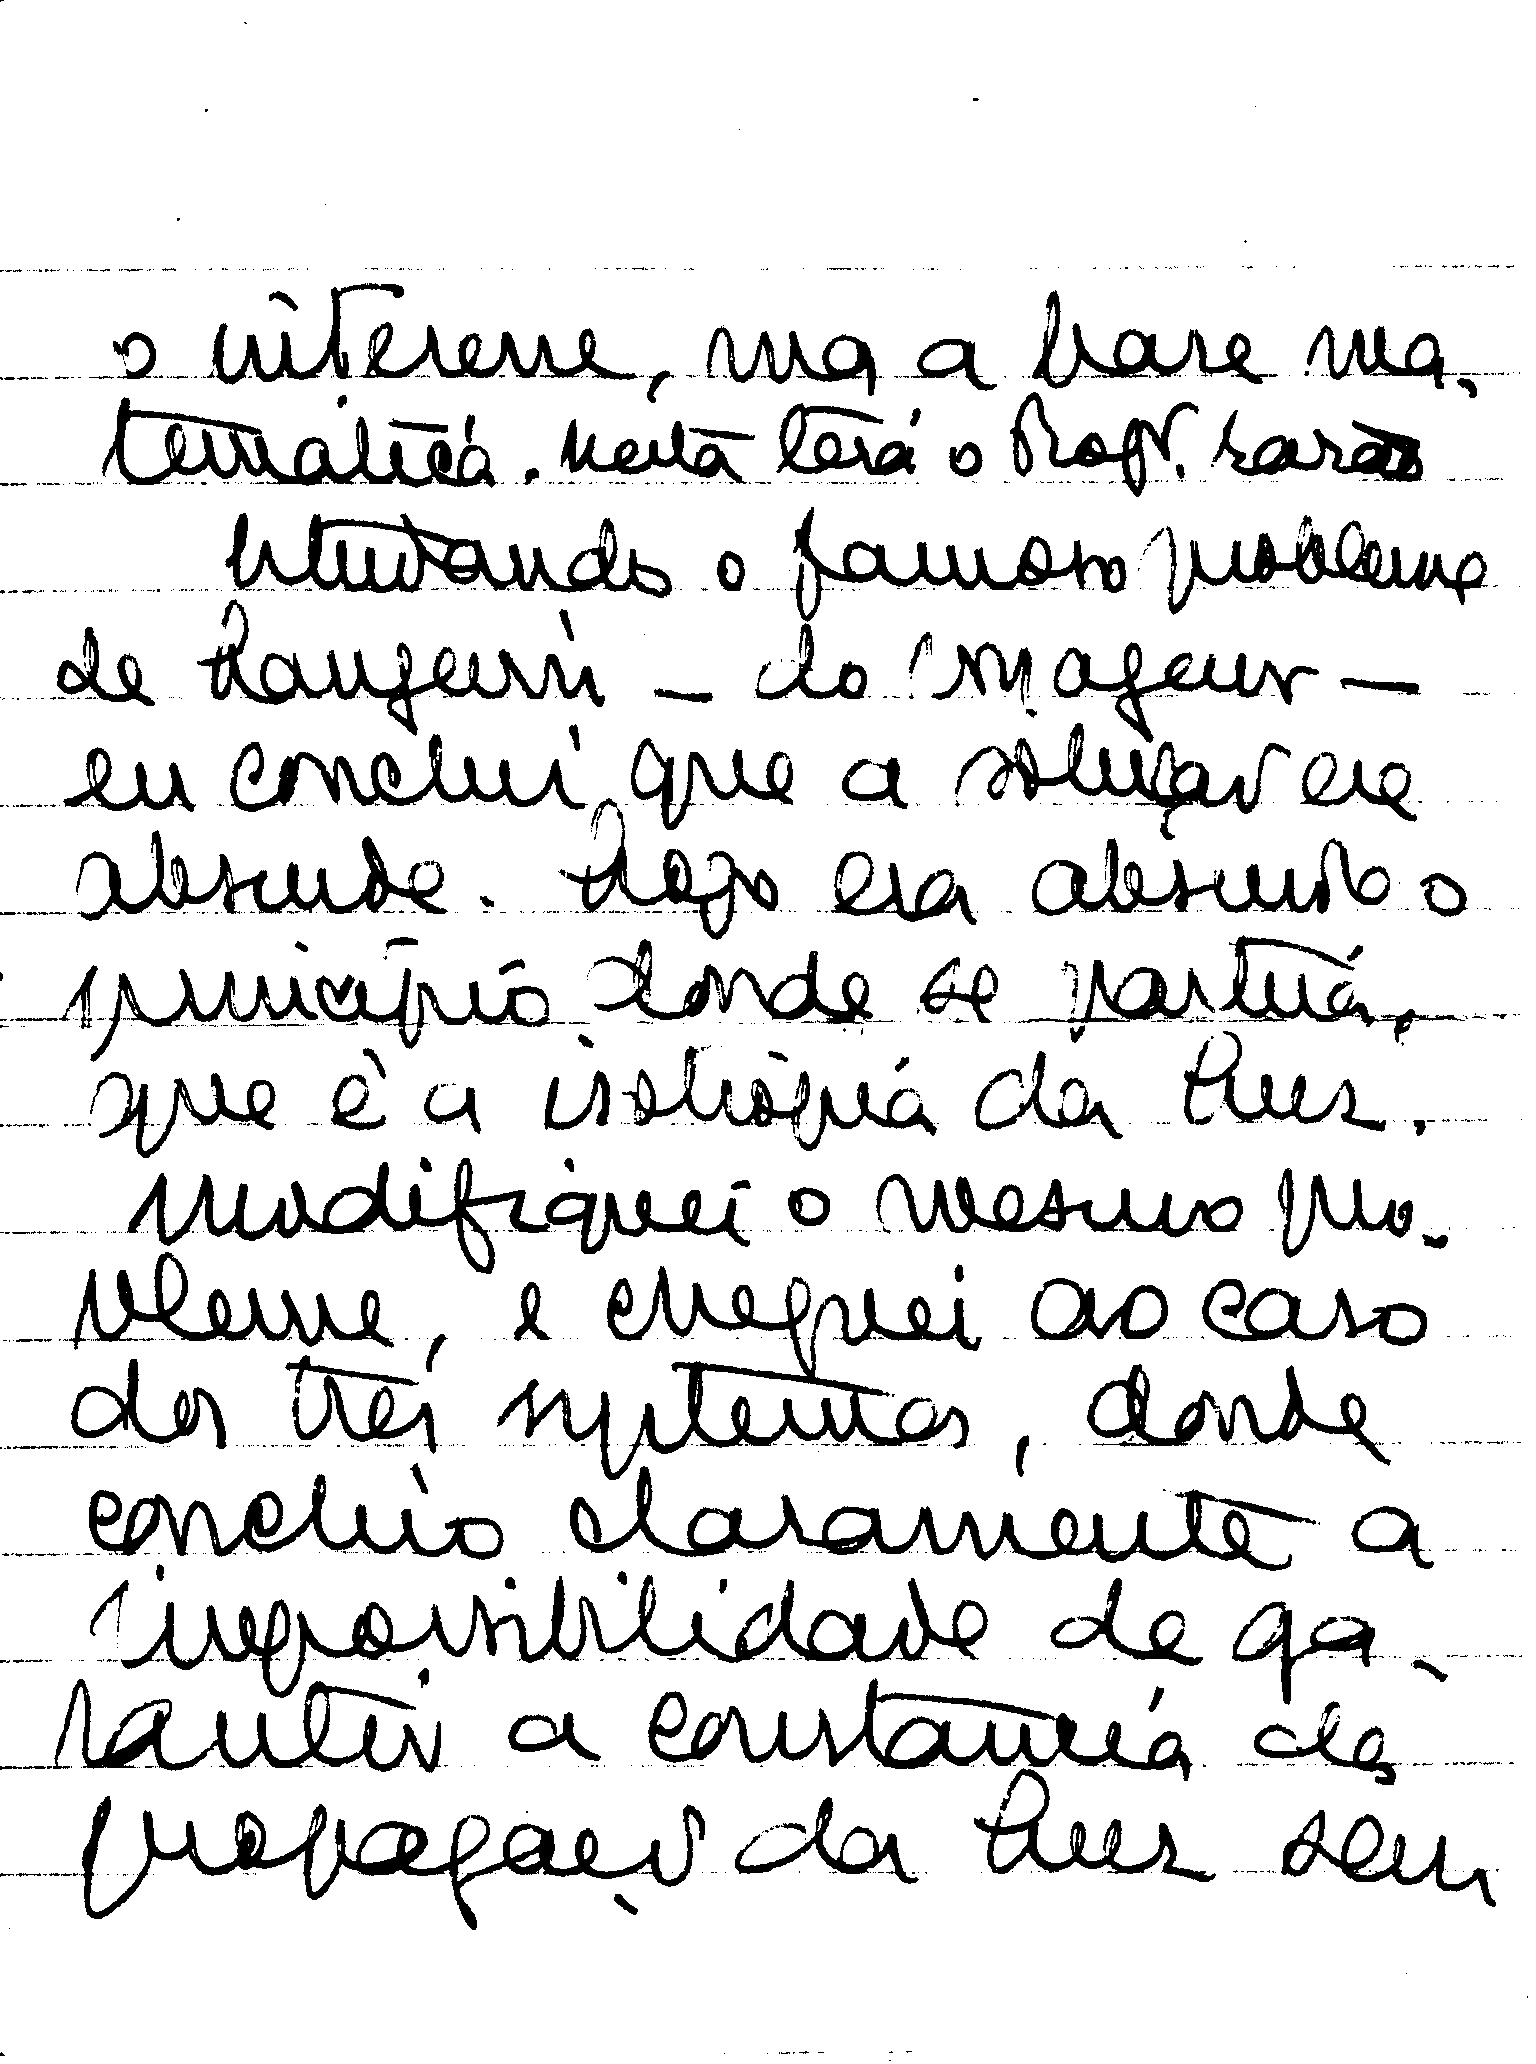 o interesse, mas a base ma-
tematica. Nesta terá o Profr. razão
Estudando o famoso problema
de Langevin — do viageur —
eu conclui que a solução era
absurda. Logo era absurdo o
principio donde se partia,
que é a isotropia da luz.
Modifiquei o mesmo pro-
blema, e cheguei ao caso
dos três systemas, donde
concluio claramente a
impossibilidade de ga-
rantir a constancia da
propagação da luz sem